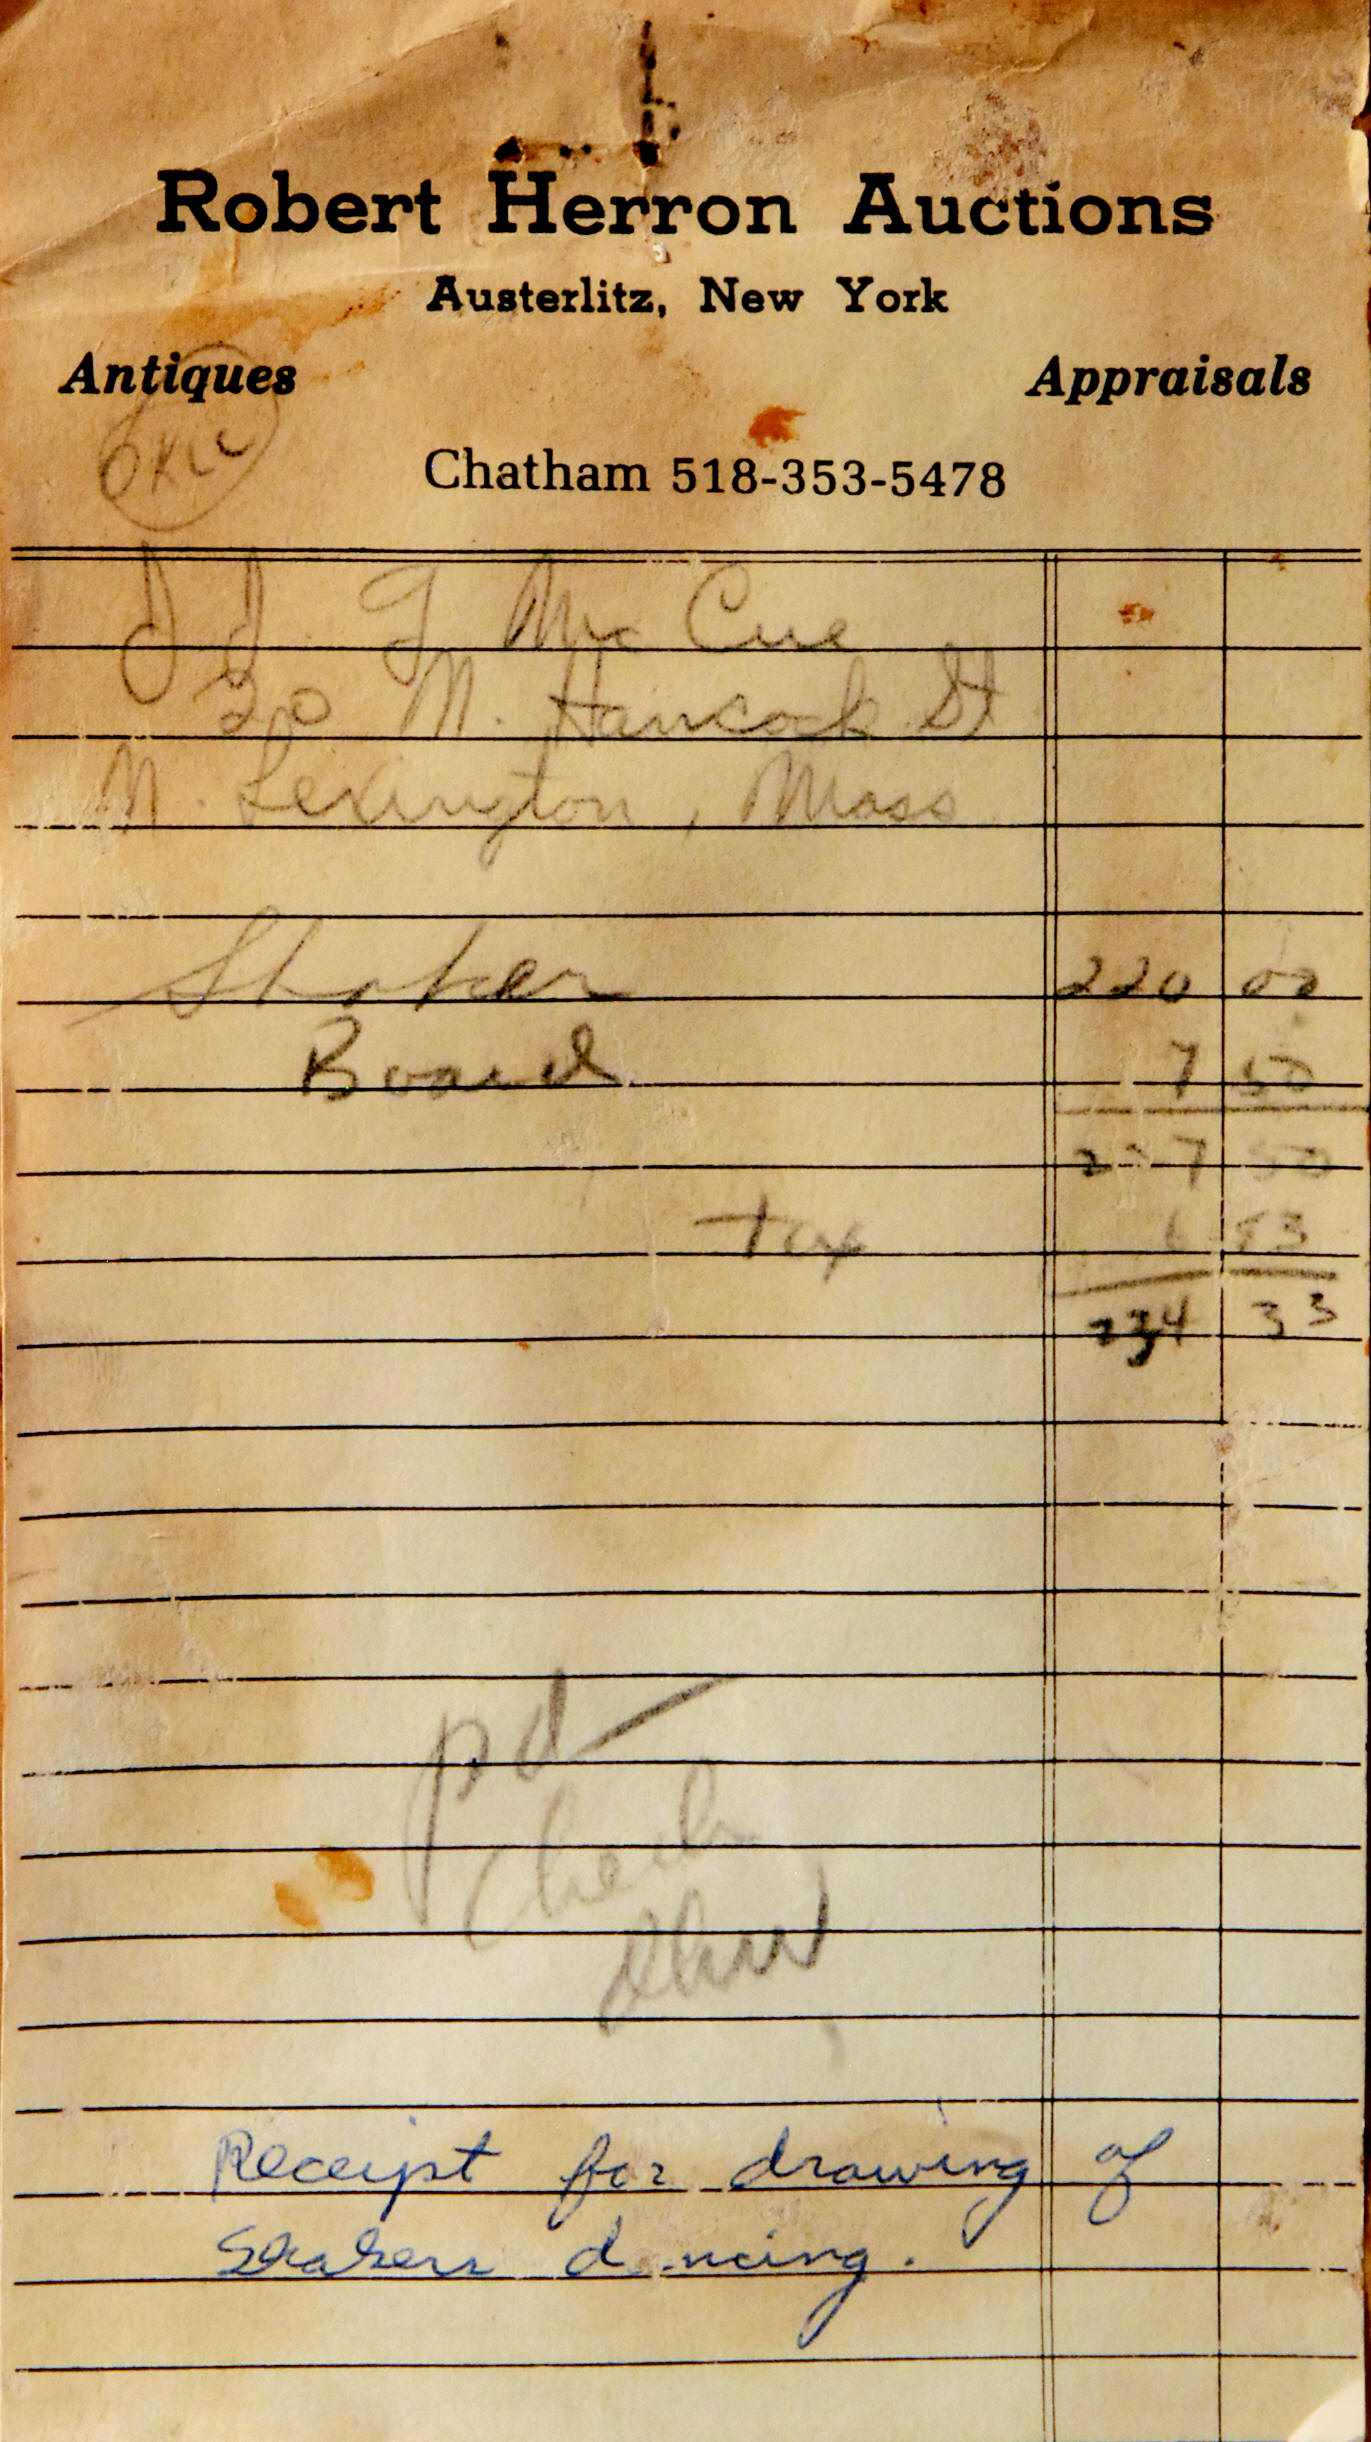 Robert Herron Auctions
Austerlitz, New York
Antiques Appraisals
Chatham 518-353-5478
J J G Mc Cue
20 N. Hancock St
N. Lexington, Mass
Shaker 220 00
Board 7 50
7 50
Tax 6 83
234 33
pd
Check
Receipt for drawing of
Shakers dancing.